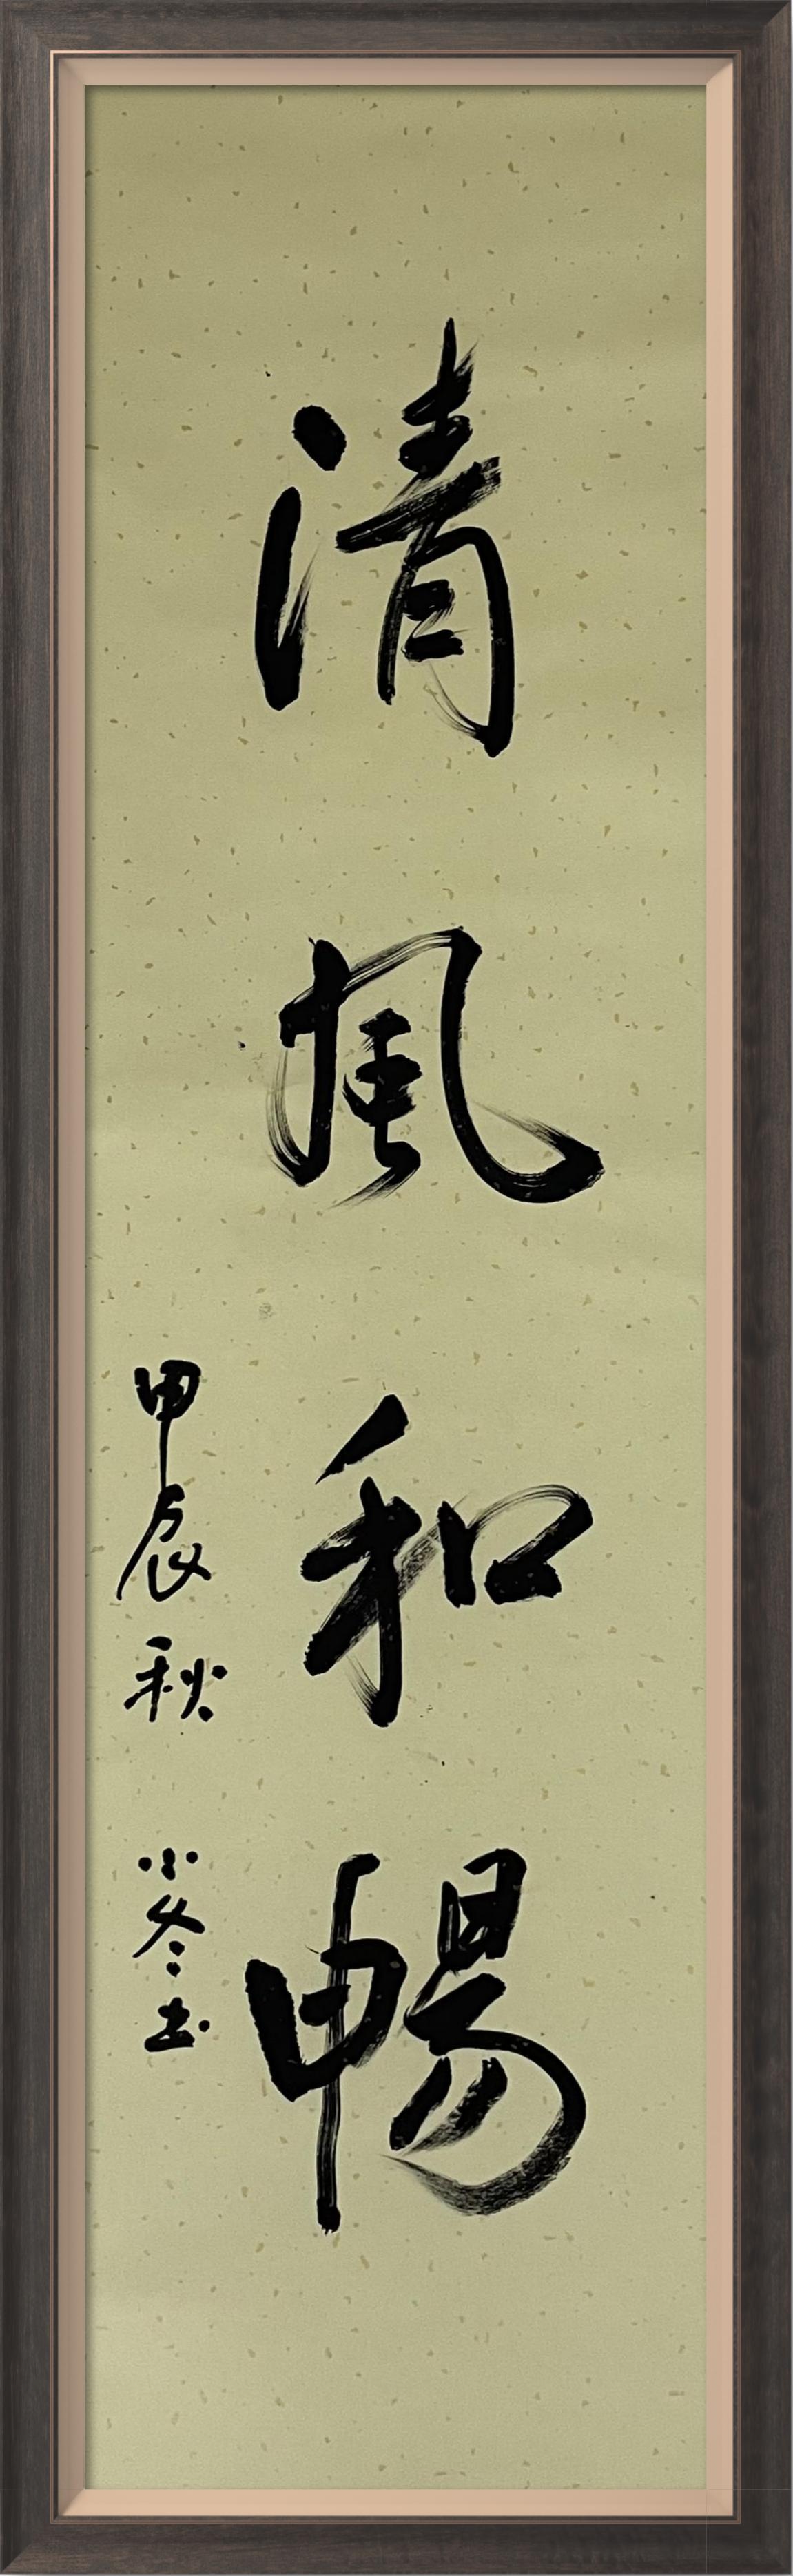 清風和暢
甲辰秋 小冬书